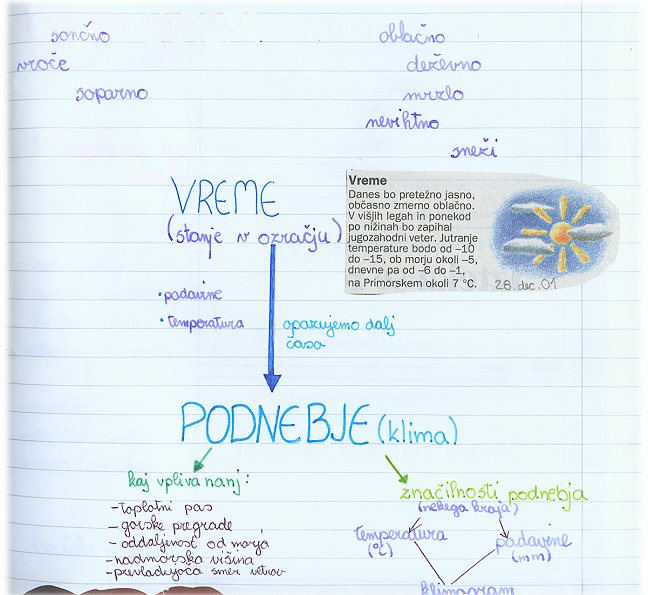 sončno
oblačno
vroče
deževno
soparno
mrzlo
nevihtno
sneži
VREME
(stanje v ozračju)
Vreme
Danes bo pretežno jasno,
občasno zmerno oblačno.
V višjih legah in ponekod
po nižinah bo zapihal
jugozahodni veter. Jutranje
temperature bodo od –10
do –15, ob morju okoli –5,
dnevne pa od –6 do –1,
na Primorskem okoli 7 °C.
28. dec. 01
• padavine
• temperatura
opazujemo dalj
časa
PODNEBJE (klima)
kaj vpliva nanj:
- toplotni pas
- gorske pregrade
- oddaljenost od morja
- nadmorska višina
- prevladujoča smer vetrov
značilnosti podnebja
(nekega kraja)
temperatura
(°C)
padavine
(mm)
klimogram